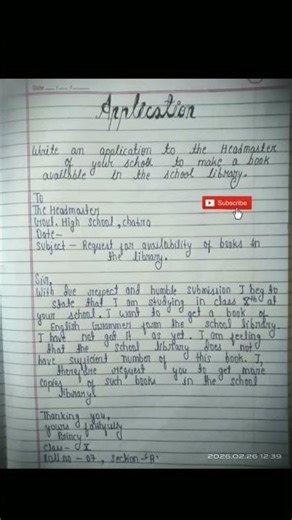 Application
Write an application to the Headmaster
of your school to make a book
available in the school library.
To
The Headmaster
Govt. High School, chatra
Date-
Subject - Request for availability of books in
the library.
Subscribe
Sir,
With due respect and humble submission I beg to
state that I am studying in class X at
your school. I want to get a book of
English Grammer form the school library.
I have not got it as yet. I am feeling
that the school library does not
have sufficient number of this book. I,
therefore request you to get more
copies of such books in the school
library.
Thanking you,
yours faithfully
Princy
class - X
Roll no - 07, Section - "A"
2026.02.26 12:39